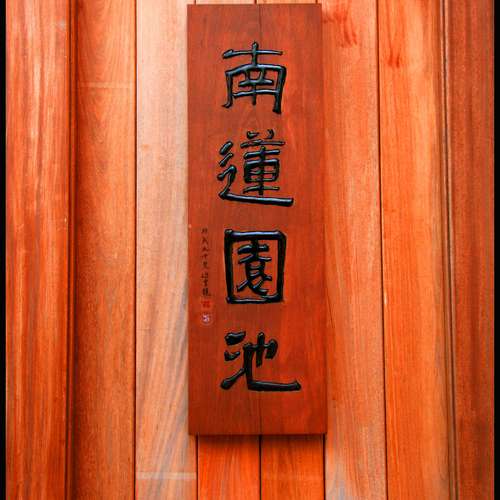 南蓮園池